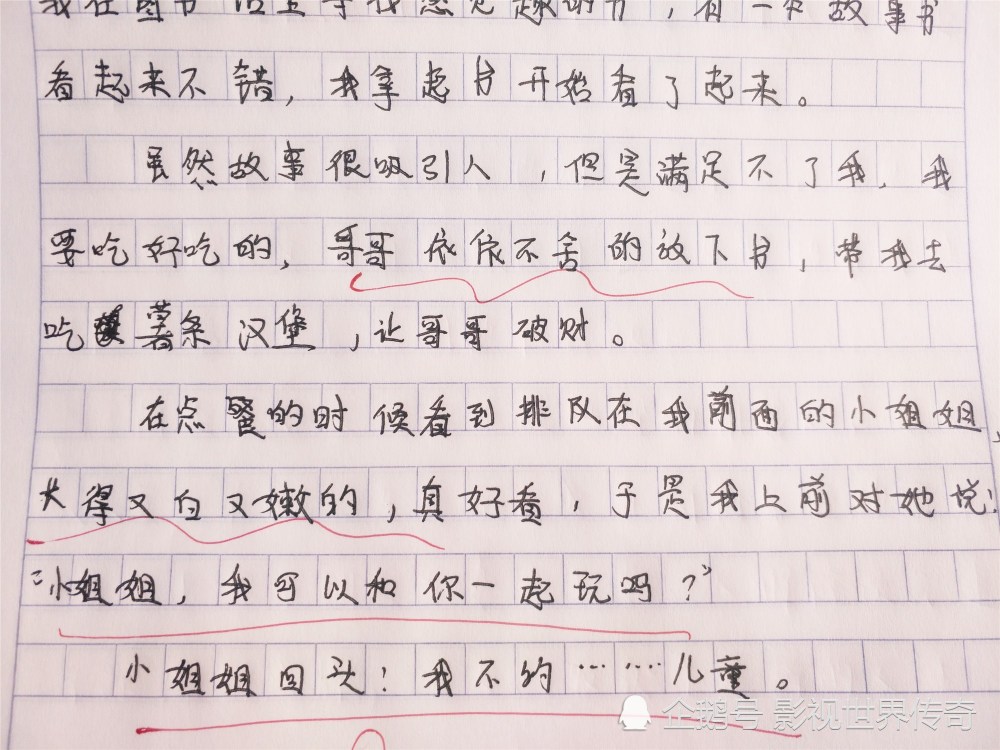 我在图书馆里寻找感兴趣的书，有一本故事书
看起来不错，我拿起书开始看了起来。
虽然故事很吸引人，但是满足不了我，我
要吃好吃的，哥哥依依不舍的放下书，带我去
吃薯条汉堡，让哥哥破财。
在点餐的时候看到排队在我前面的小姐姐，
长得又白又嫩的，真好看，于是我上前对她说：
“小姐姐，我可以和你一起玩吗？”
小姐姐回头！我不约……儿童。
企鹅号 影视世界传奇